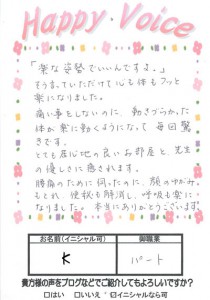 Happy Voice
「楽な姿勢でいいんですよ。」
そう言っていただけて心も体もフッと
楽になりました。
痛い事もしないのに、動きづらかった
体が楽に動くようになって毎回驚
きです。
とても居心地の良いお部屋と、先生
の優しさに癒されます。
腰痛のために伺ったのに、顔のゆがみも
とれ、便秘も解消し、呼吸も楽に
なりました。本当にありがとうございます。
お名前(イニシャル可)
御職業
K
パート
貴方様の声をブログなどでご紹介してもよろしいですか?
□はい □いいえ ☑イニシャルなら可